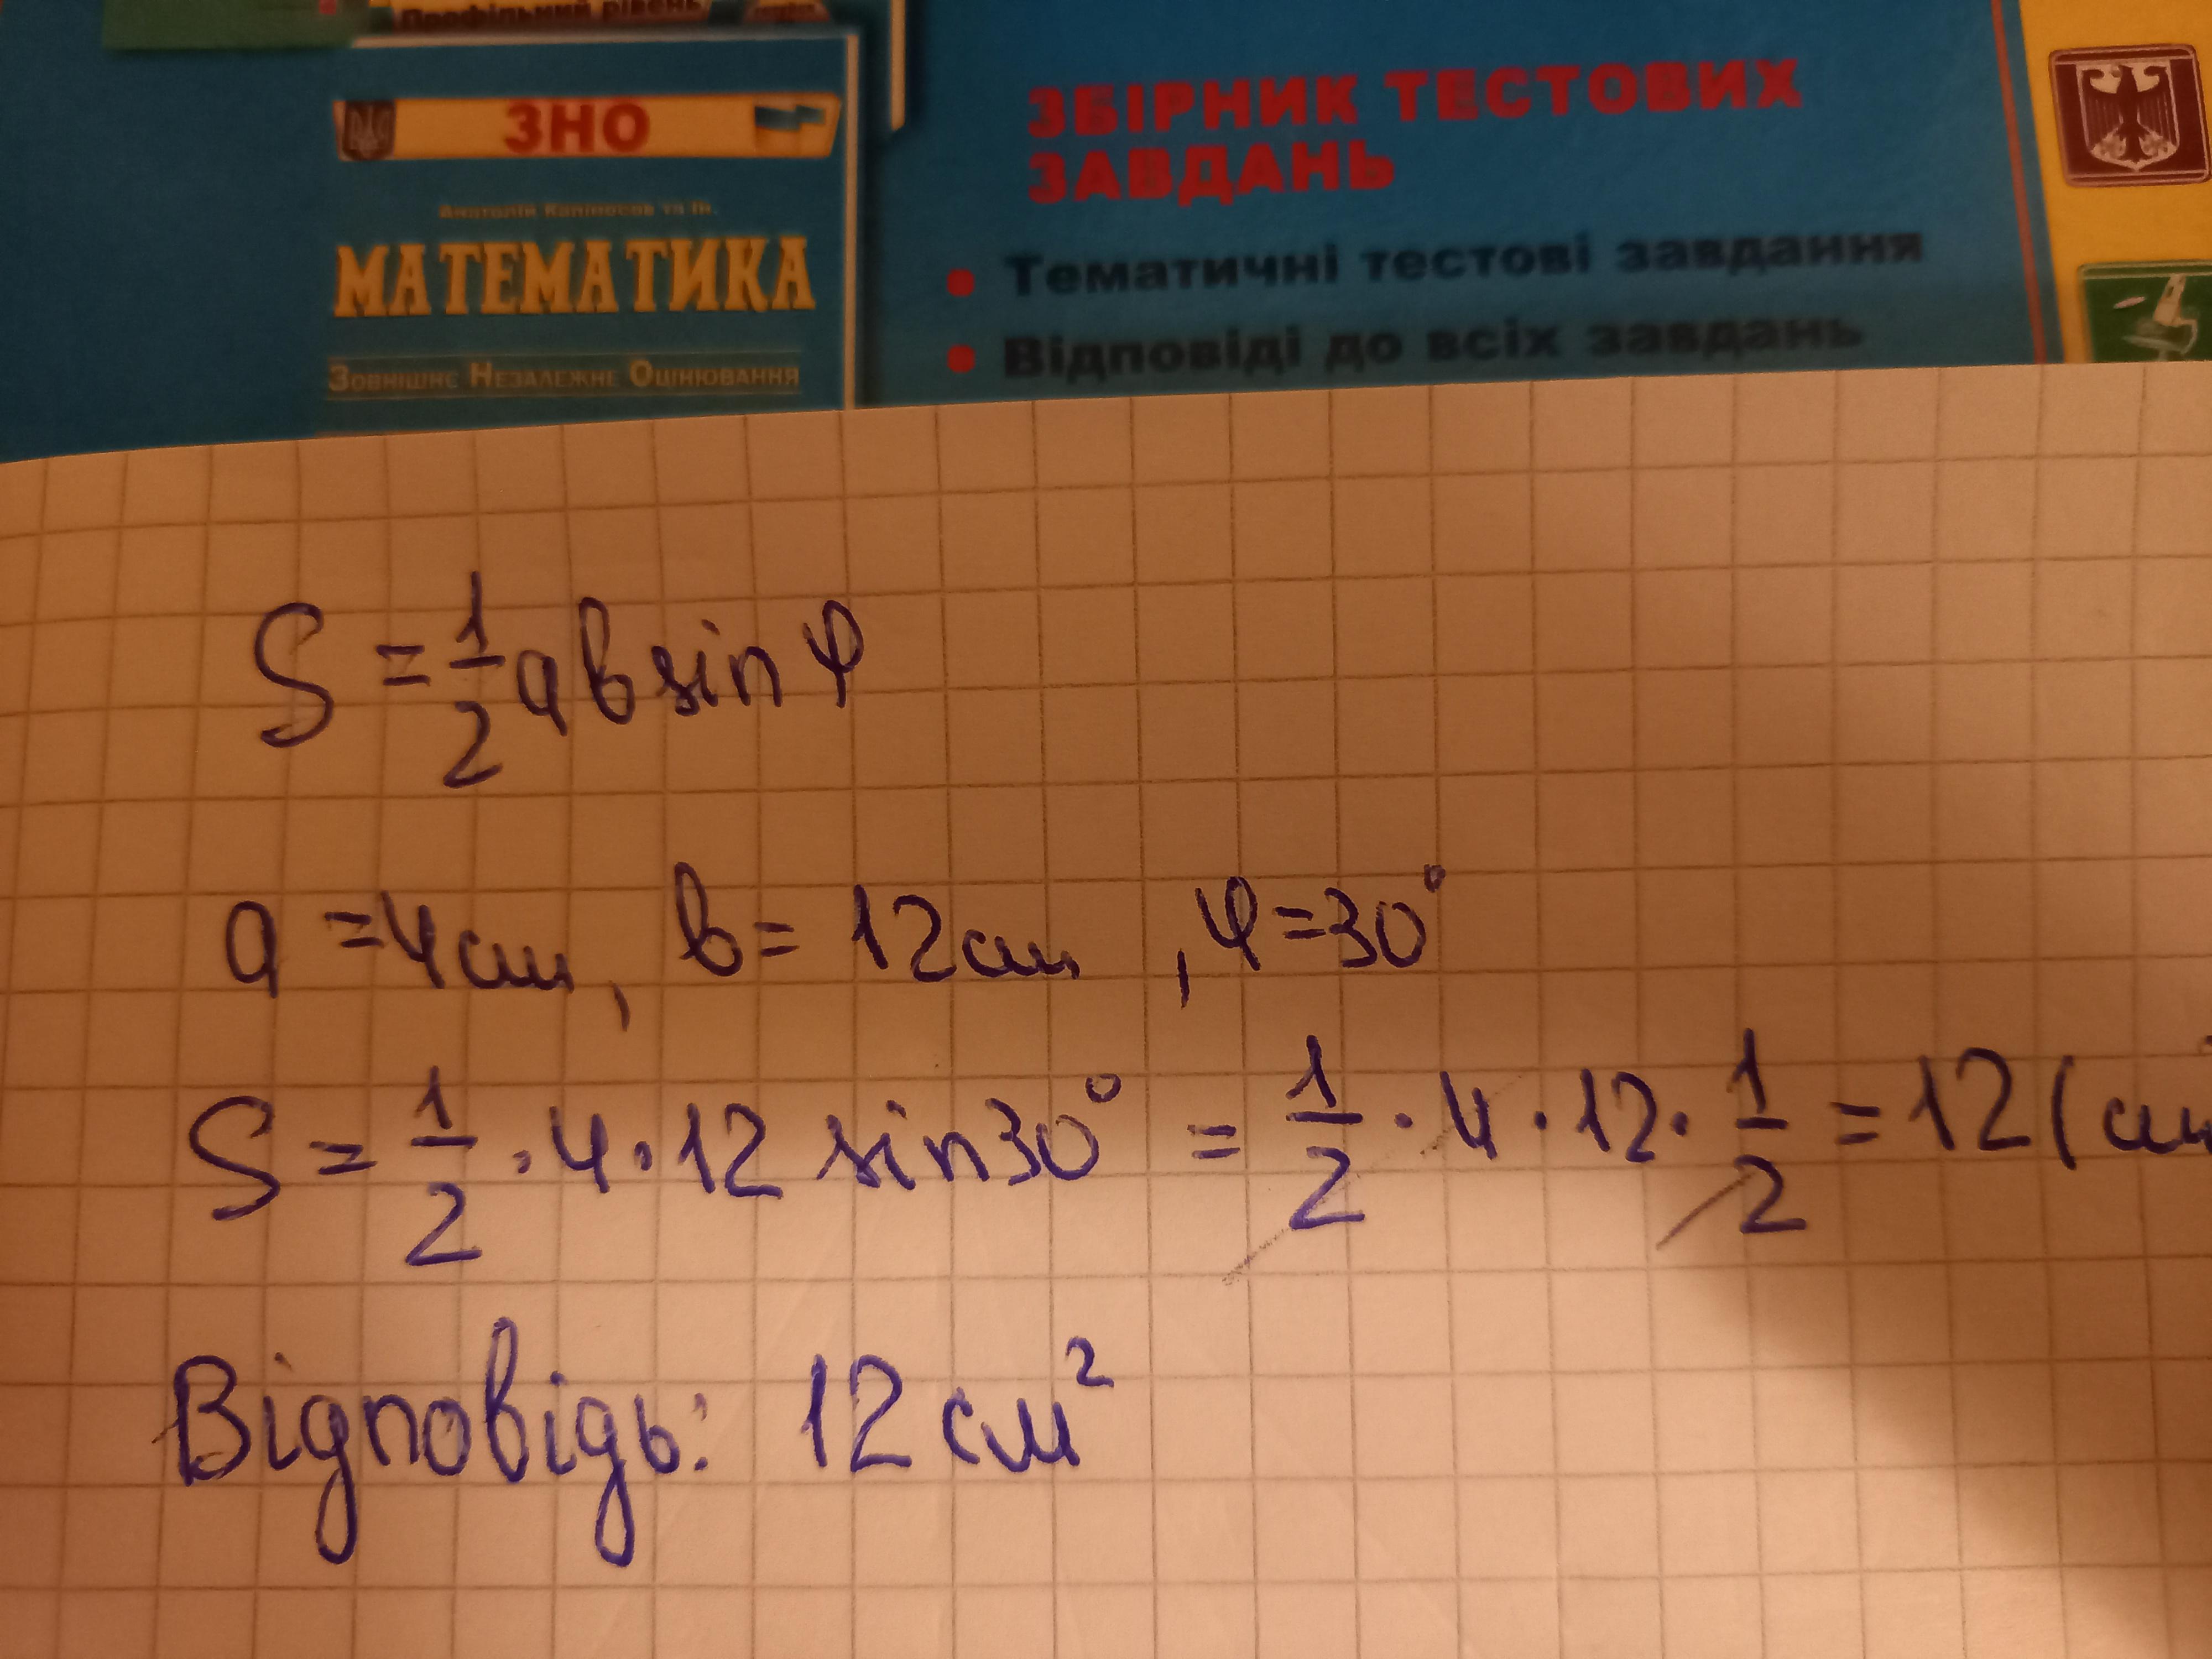 Профільний рівень
ЗНО
Анатолій Капіносов та ін.
МАТЕМАТИКА
Зовнішнє Незалежне Оцінювання
ЗБІРНИК ТЕСТОВИХ
ЗАВДАНЬ
• Тематичні тестові завдання
• Відповіді до всіх завдань
S = 1/2 ab sin φ
a = 4 см, b = 12 см, φ = 30°
S = 1/2 · 4 · 12 sin 30° = 1/2 · 4 · 12 · 1/2 = 12 (см
Відповідь: 12 см²